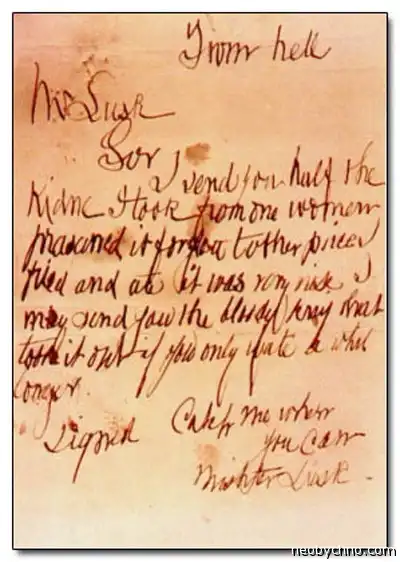 From hell
Mr Lusk
Sor
I send you half the
Kidne I took from one women
prasarved it for you tother piece I
fried and ate it was very nise I
may send you the bloody knif that
took it out if you only wate a whil
longer.
signed
Catch me when
you can
Mishter Lusk.
neobychno.com